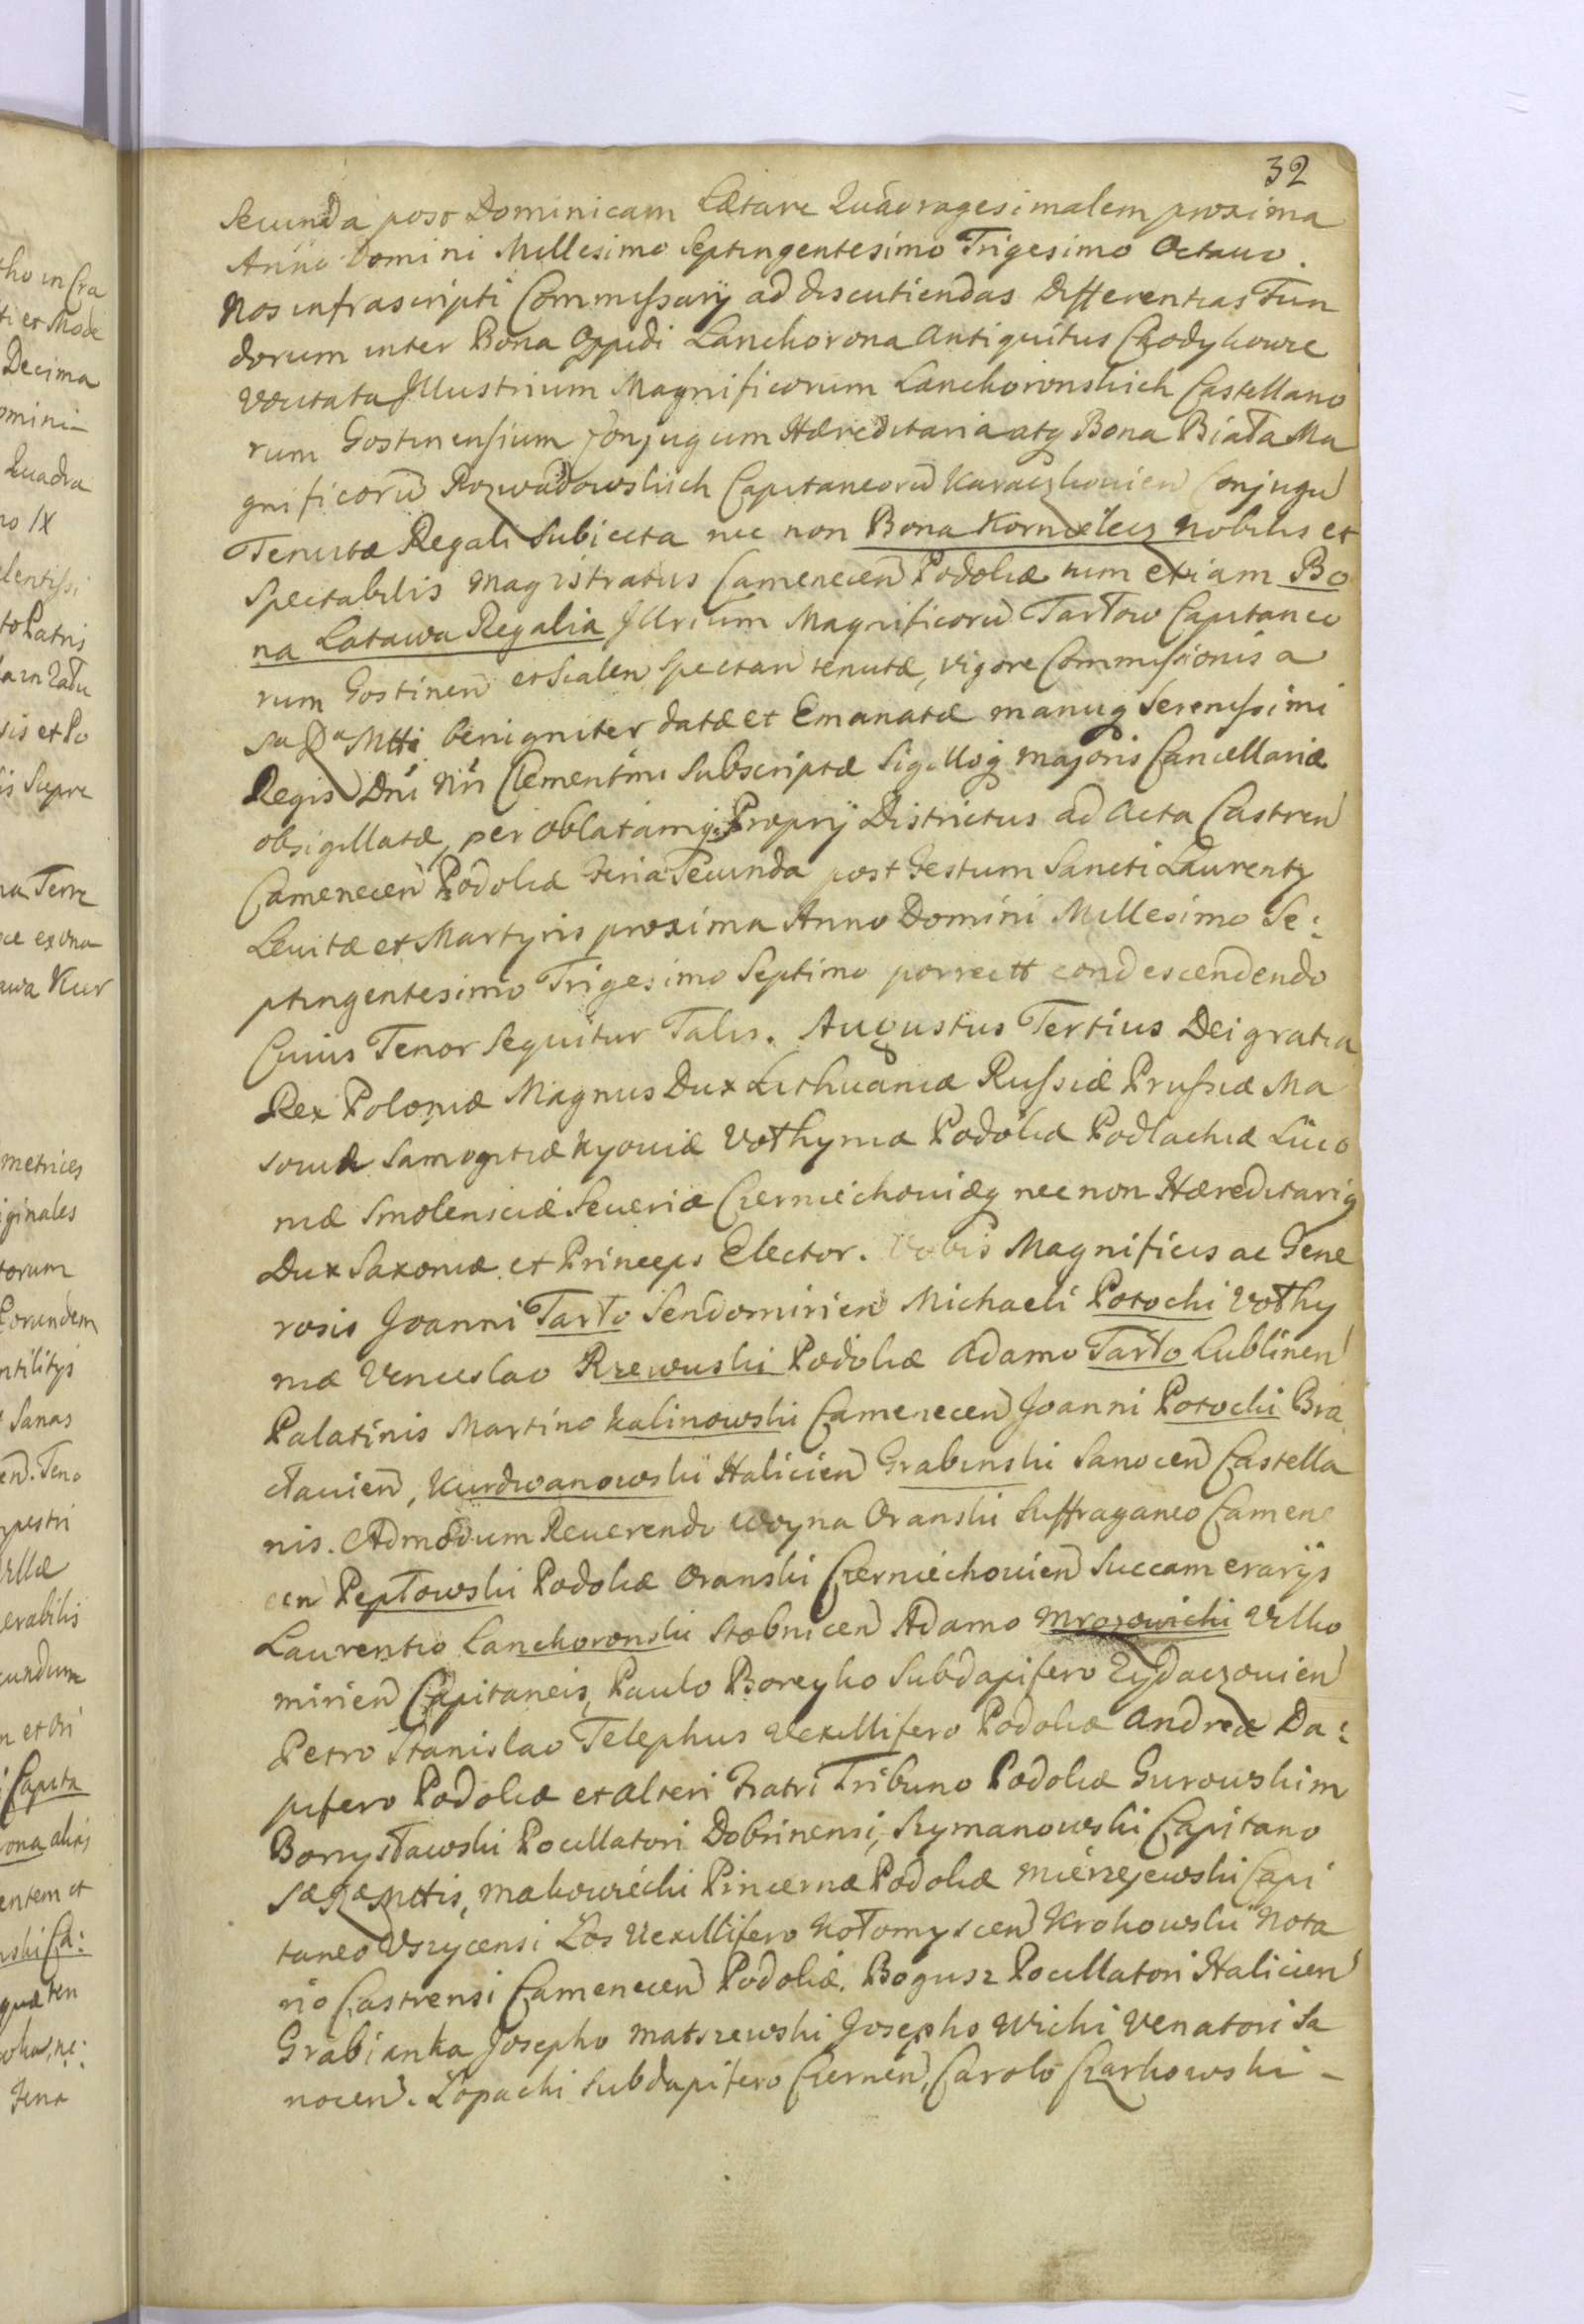 32
Secunda post Dominicam Lætare Quadragesimalem proxima
Anno Domini Millesimo Septingentesimo Trigesimo Octavo.
Nos infrascripti Commissarÿ ad discutiendas Differentias Fun
dorum inter Bona Oppidi Lanckorona Antiquitus Chodykowce
Vocitata Jllustrium Magnificorum Lanckoronskich Castellano
rum Gostinensium Conjugum Hæreditaria atq Bona Biała Ma
gnificorū Rozwadowskich Capitaneorū Karaczkovien Conjugū
Tenutæ Regali Subiecta nec non Bona Kornilecz Nobilis et
Spectabilis Magistratus Camenecen Podoliæ tum etiam Bo
na Latawa Regalia Jllrium Magnificorū Tarłow Capitaneo
rum Gostinen et Scalen Spectan tenutæ, vigore Commissionis a
Sa Ra Mtte benigniter datæ et Emanatæ manuq Serenissimi
Regis Dni Nri Clementimi Subscriptæ Sigilloq majoris Cancellariæ
obsigillatæ, per oblatamq Proprÿ Districtus ad Acta Castren
Camenecen Podoliæ Feria Secunda post Festum Sancti Laurentÿ
Levitæ et Martyris proxima Anno Domini Millesimo Se:
ptingentesimo Trigesimo Septimo porrectt condescendendo
Cuius Tenor Sequitur Talis. Augustus Tertius Dei gratia
Rex Poloniæ Magnus Dux Lithuaniæ Russiæ Prussiæ Ma
soviæ Samogitiæ Kyoviæ Vołhyniæ Podoliæ Podlachiæ Livo
niæ Smolensciæ Severiæ Czerniechoviæq nec non Hæreditariq
Dux Saxoniæ et Princeps Elector. Vobis Magnificis ac Gene
rosis Joanni Tarło Sendomirien Michaeli Potocki Vołhy
niæ Venceslao Rzewuski Podoliæ Adamo Tarło Lublinen
Palatinis Martino Kalinowski Camenecen Joanni Potocki Bra
cłavien, Kurdwanowski Halicien Grabinski Sanocen Castella
nis. Admodum Reverendo Woyna Oranski Suffraganeo Camene
cen Pepłowski Podoliæ Oranski Czerniechovien Succamerarÿs
Laurentio Lanckoronski Stobnicen Adamo Mrozowicki Ulko
mirien Capitaneis, Paulo Boreyko Subdapifero Zydaczovien
Petro Stanislao Telephus Vexillifero Podoliæ Andreæ Da:
pifero Podoliæ et alteri Fratri Tribuno Podoliæ Gurowskim
Borysławski Pocillatori Dobrinensi, Szymanowski Capitano
Sæ Ræ Mttis, Makowiecki Pincernæ Podoliæ Mierzejewski Capi
taneo Uszycensi Łos Vexillifero Kołomyscen Krokowski Nota
rio Castrensi Camenecen Podoliæ. Bogusz Pocillatori Halicien
Grabianka Josepho Matszewski Josepho Wicki Venatori Sa
nocen. Łopacki Subdapifero Czernen, Carolo Czarkowski -